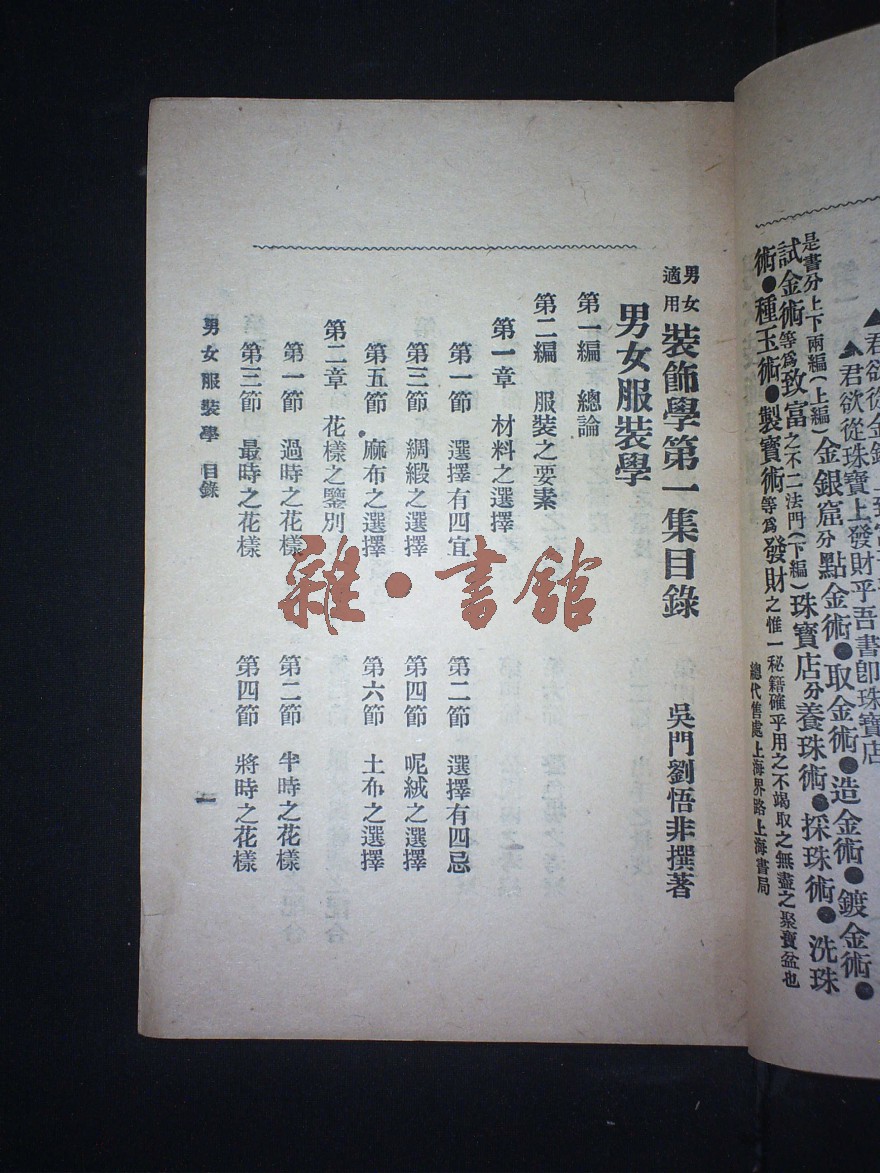 ▲君欲從珠寶上發財乎吾書卽珠寶店
是書分上下兩編(上編)金銀窟分點金術●取金術●造金術●鍍金術●
試金術等爲致富之不二法門(下編)珠寶店分養珠術●採珠術●洗珠
術●種玉術●製寶術等爲發財之惟一秘籍確乎用之不竭取之無盡之聚寶盆也
總代售處上海界路上海書局
男女適用裝飾學第一集目錄 吳門劉悟非撰著
男女服裝學
第一編 總論
第二編 服裝之要素
第一章 材料之選擇
第一節 選擇有四宜 第二節 選擇有四忌
第三節 綢緞之選擇 第四節 呢絨之選擇
第五節 麻布之選擇 第六節 土布之選擇
第二章 花樣之鑒別
第一節 過時之花樣 第二節 半時之花樣
第三節 最時之花樣 第四節 將時之花樣
男女服裝學 目錄 一
雜·書館